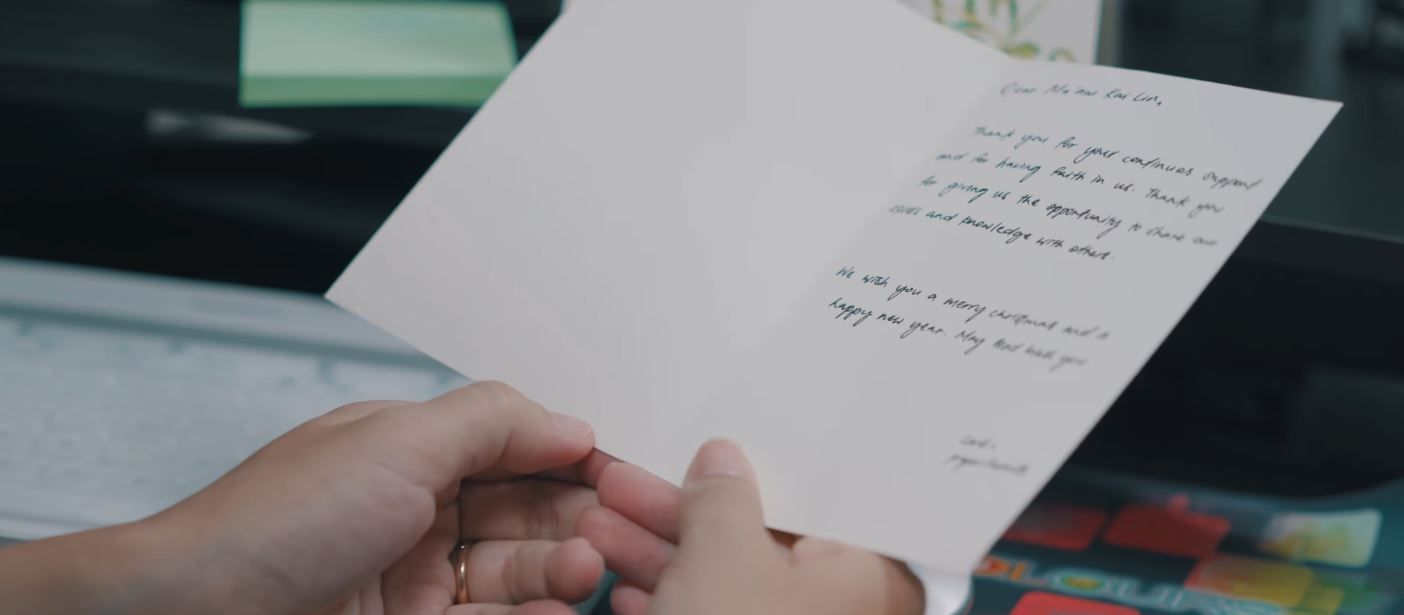 Dear Ma'am Kai Lin,
Thank you for your continues support
and for having faith in us. Thank you
for giving us the opportunity to share our
and knowledge with others.
We wish you a merry christmas and a
happy new year. May God bless you
Love,
COLOURS